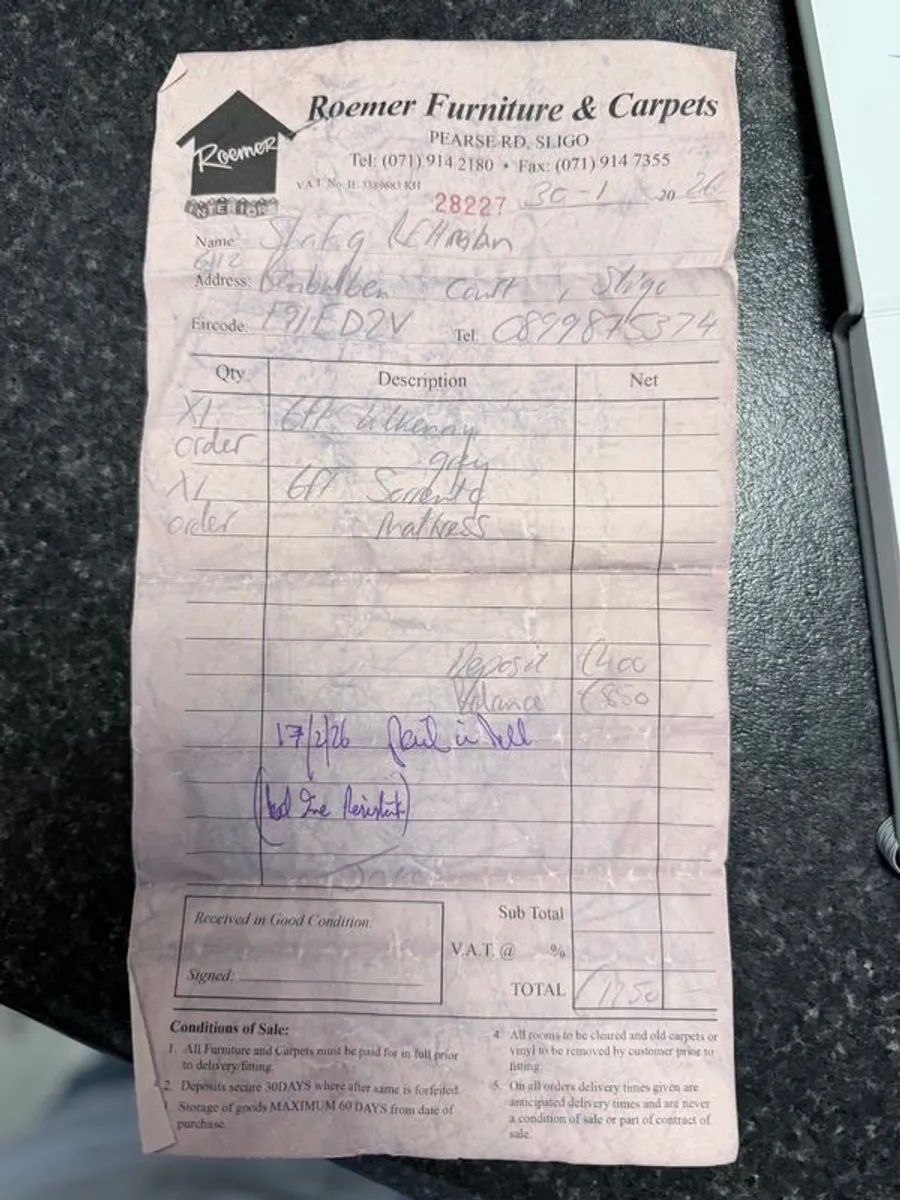 Roemer Furniture & Carpets
PEARSE RD, SLIGO
Tel: (071) 914 2180 • Fax: (071) 914 7355
V.A.T. No. IE 3389683 KH
Roemer
INTERIORS
28227 30-1 2026
Name: Shafiq REHman
6112
Address: Benbulben Court, Sligo
Eircode: F91ED2V Tel. 0899875374
Qty Description Net
X1 6Ft Kilkenny
order grey
X1 6Ft Sorrento
order Mattress
Deposit €400
Balance €850
17/2/26 Paid in full
Sub Total
Received in Good Condition:
V.A.T. @ %
Signed:
TOTAL €1250
Conditions of Sale:
1. All Furniture and Carpets must be paid for in full prior
to delivery/fitting.
2. Deposits secure 30DAYS where after same is forfeited.
Storage of goods MAXIMUM 60 DAYS from date of
purchase.
4. All rooms to be cleared and old carpets or
vinyl to be removed by customer prior to
fitting.
5. On all orders delivery times given are
anticipated delivery times and are never
a condition of sale or part of contract of
sale.